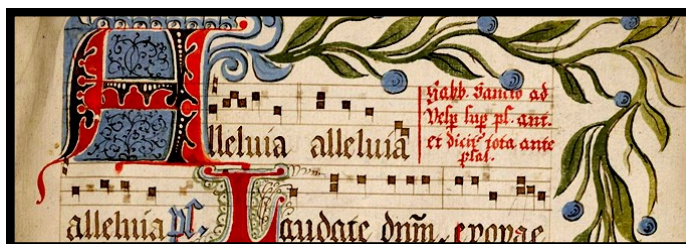 Alleluia alleluia
Sabb. Sancto ad
Vesp sup ps. ant.
et dicit tota ante
psal.
alleluia ps. Laudate dnm̄. evovae